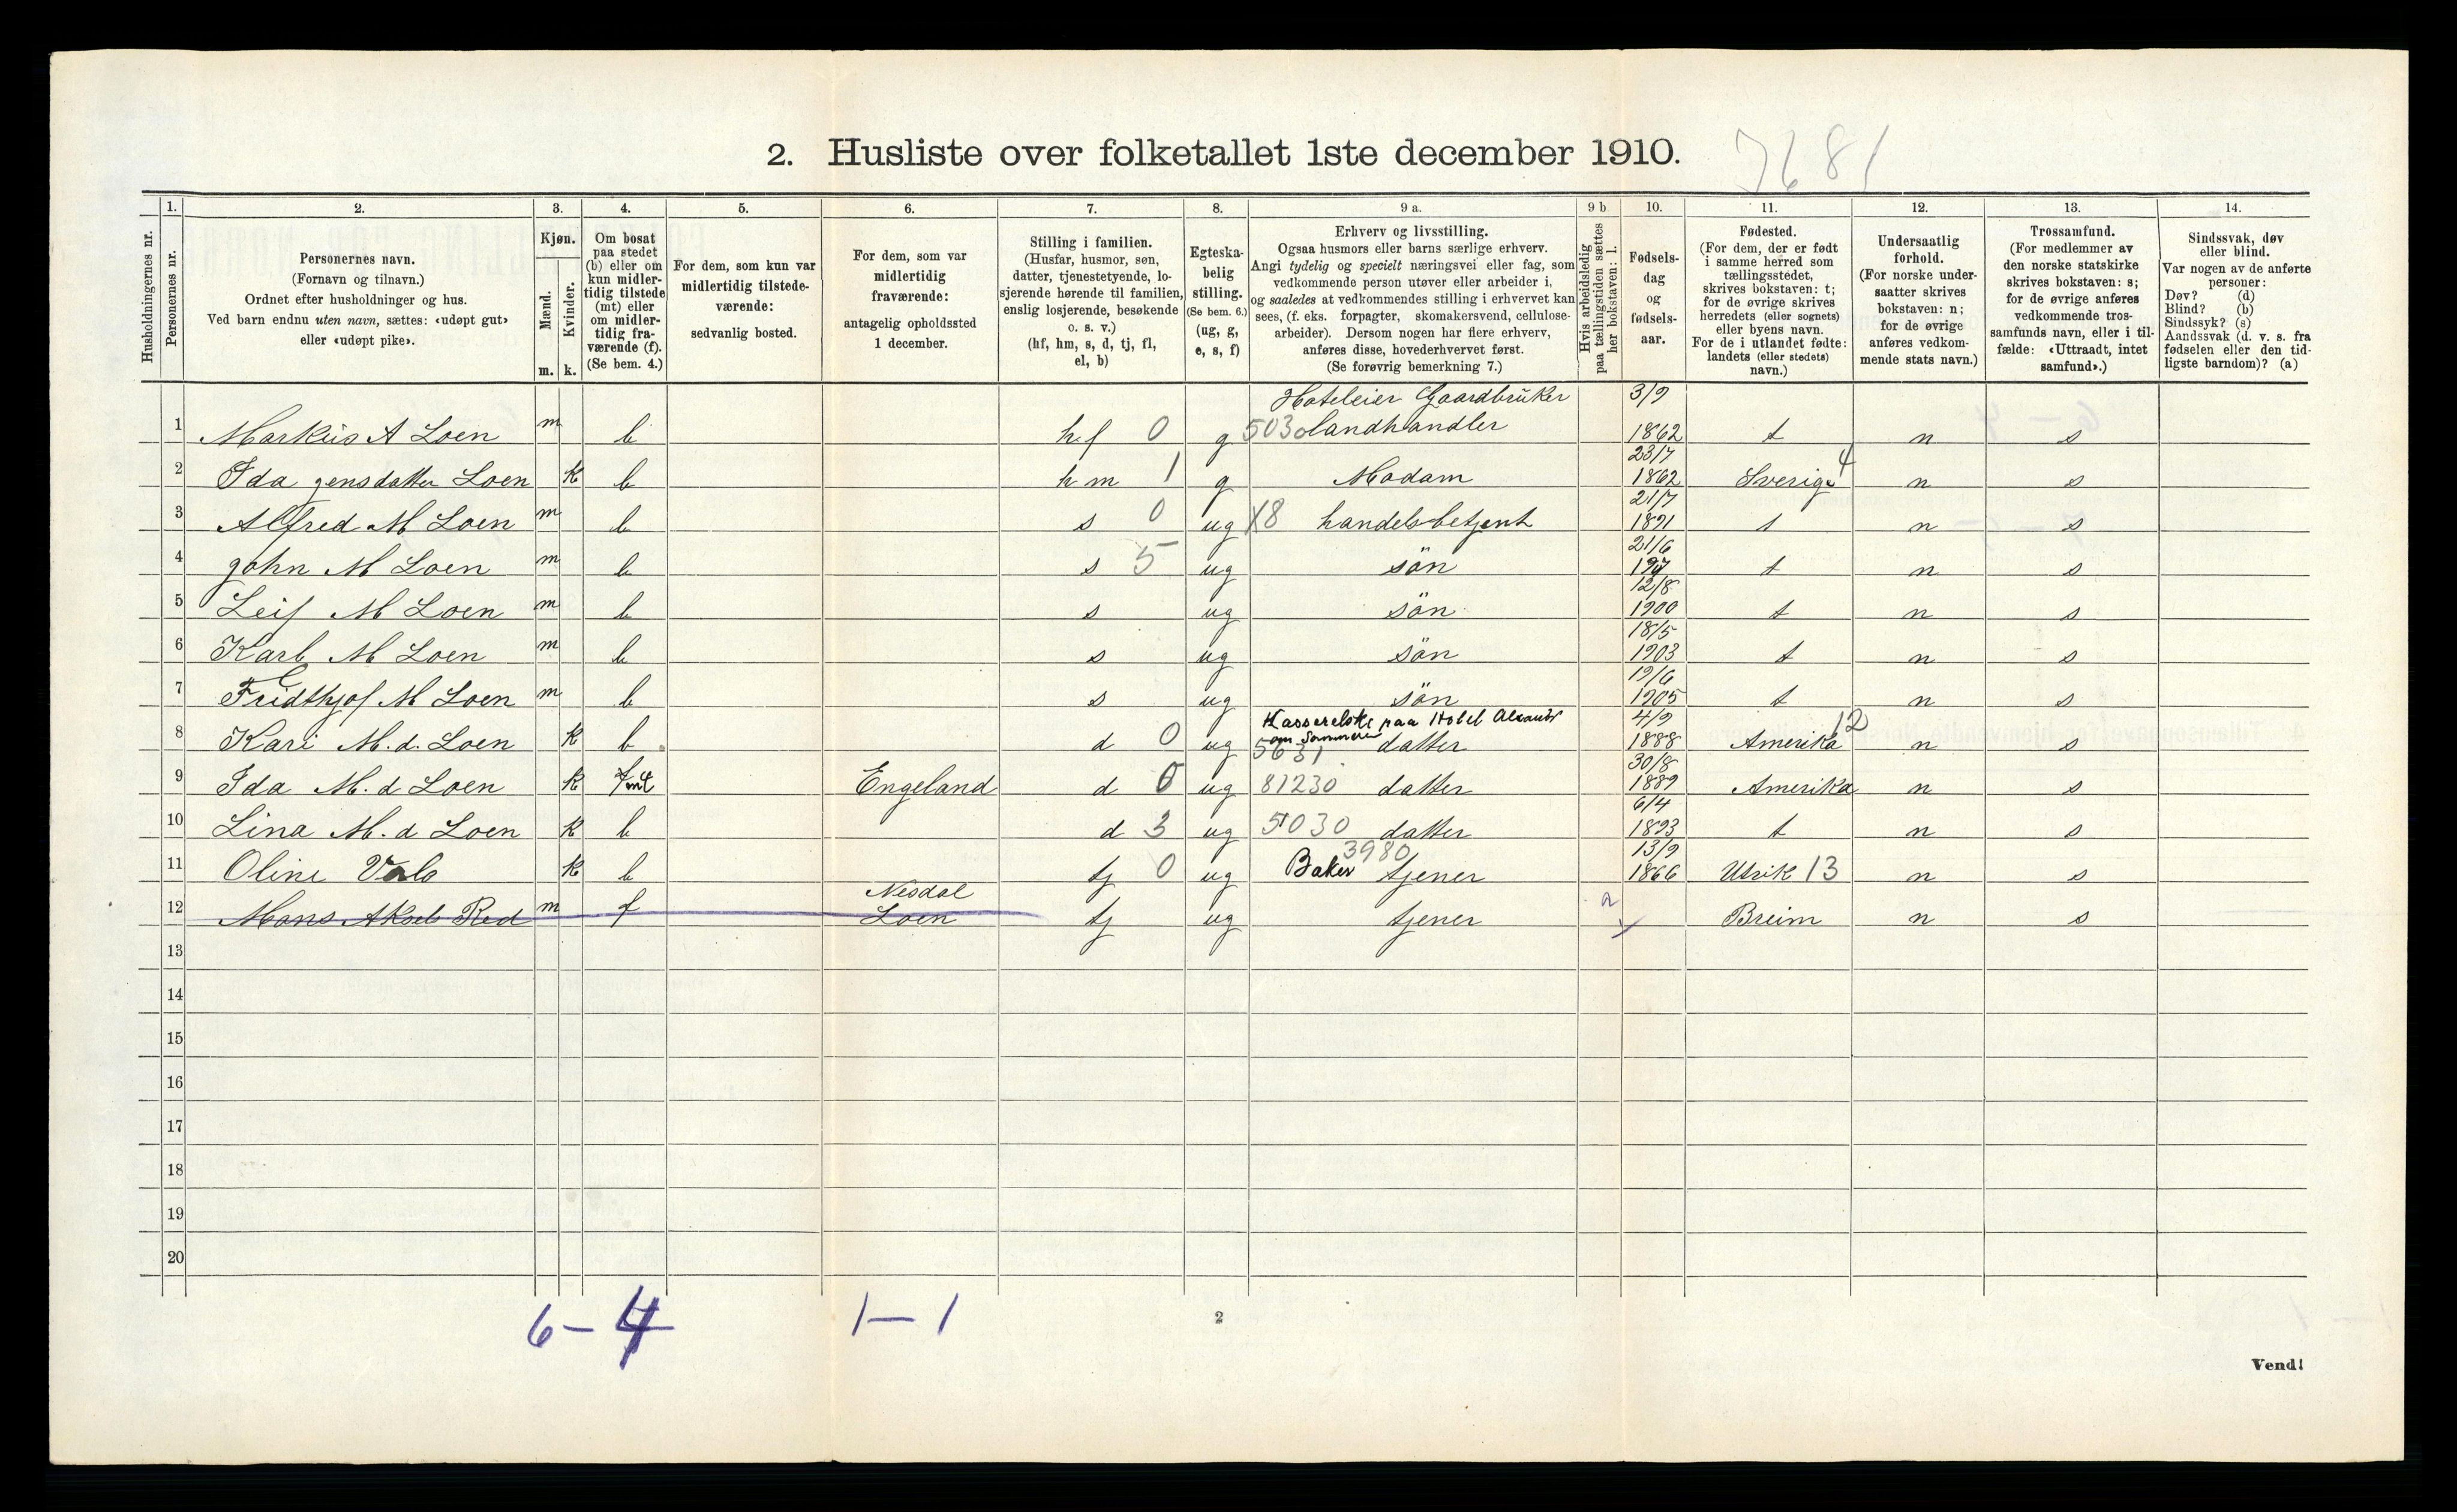 2. Husliste over folketallet 1ste december 1910.
7681
Husholdningernes nr.
1. Personernes nr.
2. Personernes navn.
(Fornavn og tilnavn.)
Ordnet efter husholdninger og hus.
Ved barn endnu uten navn, sættes: «udøpt gut»
eller «udøpt pike».
3. Kjøn.
Mænd. m.
Kvinder. k.
4. Om bosat
paa stedet
(b) eller om
kun midler-
tidig tilstede
(mt) eller
om midler-
tidig fra-
værende (f).
(Se bem. 4.)
5. For dem, som kun var
midlertidig tilstede-
værende:
sedvanlig bosted.
6. For dem, som var
midlertidig
fraværende:
antagelig opholdssted
1 december.
7. Stilling i familien.
(Husfar, husmor, søn,
datter, tjenestetyende, lo-
sjerende hørende til familien,
enslig losjerende, besøkende
o. s. v.)
(hf, hm, s, d, tj, fl,
el, b)
8. Egteska-
belig
stilling.
(Se bem. 6.)
(ug, g,
e, s, f)
9 a. Erhverv og livsstilling.
Ogsaa husmors eller barns særlige erhverv.
Angi tydelig og specielt næringsvei eller fag, som
vedkommende person utøver eller arbeider i,
og saaledes at vedkommendes stilling i erhvervet kan
sees, (f. eks. forpagter, skomakersvend, cellulose-
arbeider). Dersom nogen har flere erhverv,
anføres disse, hovederhvervet først.
(Se forøvrig bemerkning 7.)
9 b Hvis arbeidsledig
paa tællingstiden sættes
her bokstaven: l.
10. Fødsels-
dag
og
fødsels-
aar.
11. Fødested.
(For dem, der er født
i samme herred som
tællingsstedet,
skrives bokstaven: t;
for de øvrige skrives
herredets (eller sognets)
eller byens navn.
For de i utlandet fødte:
landets (eller stedets)
navn.)
12. Undersaatlig
forhold.
(For norske under-
saatter skrives
bokstaven: n;
for de øvrige
anføres vedkom-
mende stats navn.)
13. Trossamfund.
(For medlemmer av
den norske statskirke
skrives bokstaven: s;
for de øvrige anføres
vedkommende tros-
samfunds navn, eller i til-
fælde: «Uttraadt, intet
samfund».)
14. Sindssvak, døv
eller blind.
Var nogen av de anførte
personer:
Døv? (d)
Blind? (b)
Sindssyk? (s)
Aandssvak (d. v. s. fra
fødselen eller den tid-
ligste barndom)? (a)
Hoteleier Gaardbruker 3/9
1 Markus A Loen m b hf 0 g 5030 landhandler 1862 t n s
23/7 4
2 Ida jensdatter Loen k b hm 1 g Madam 1862 Sverige n s
21/7
3 Alfred M Loen m b s 0 ug X8 handelsbetjent 1891 t n s
21/6
4 john M Loen m b s 5 ug sön t n s
12/8
5 Leif M Loen m b s ug sön 1900 t n s
18/5
6 Karl M Loen m b s ug sön 1903 t n s
19/6
7 Fridthjof M Loen m b s ug sön 1905 t n s
Kasserelske paa Hotel 4/9 12
om Sommeren
8 Kari M. d. Loen k b d 0 ug 5631 datter 1888 Amerika n s
30/8
9 Ida M. d Loen k Engeland d ug 81230 datter 1889 Amerika n s
6/4
10 Lina M. d Loen k b d 3 ug 5030 datter 1893 t n s
3980 13/9
11 Oline k b tj 0 ug Baker tjener 1866 Utvik 13 n s
Nesdal
12 Mons Aksels Red m f Loen tj ug tjener Breim n s
13
14
15
16
17
18
19
20
6 – 4 1 – 1
2
Vend!